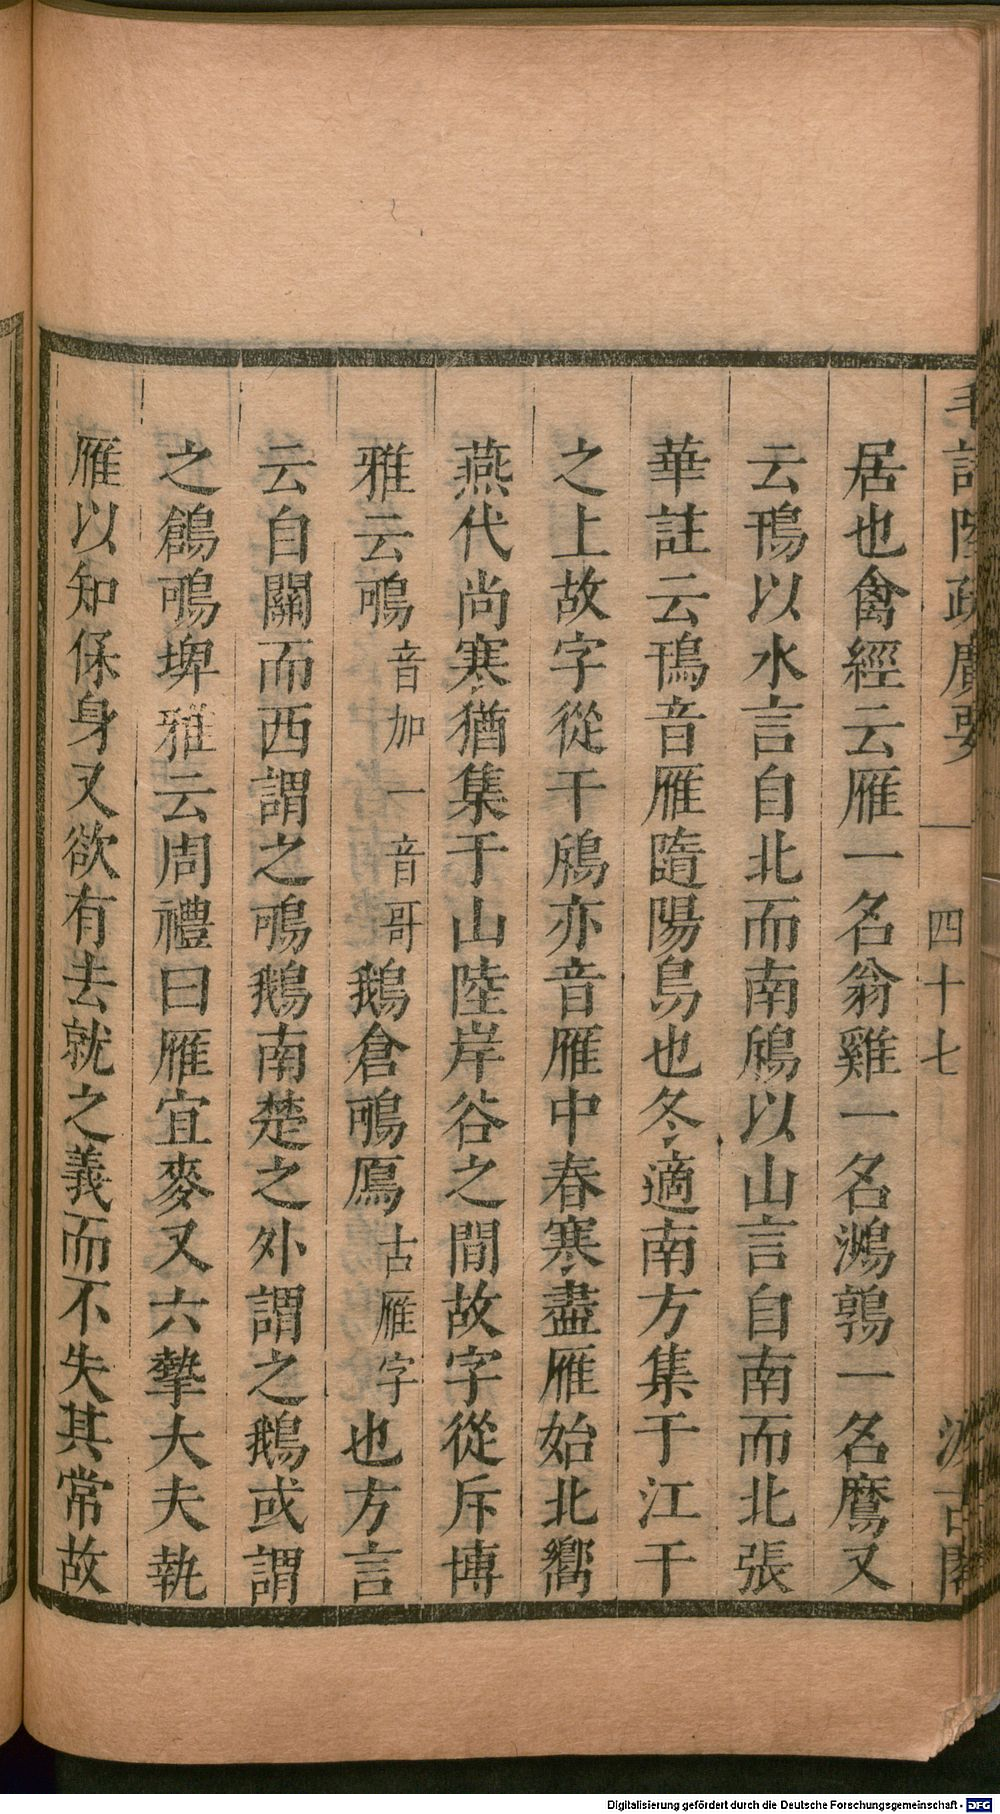 毛詩陸疏廣要 四十七 汲古閣
居也禽經云雁一名翁雞一名鴻鶉一名鷹又
云鳱以水言自北而南鳫以山言自南而北張
華註云鳱音雁隨陽鳥也冬適南方集于江干
之上故字從干鳫亦音雁中春寒盡雁始北嚮
燕代尚寒猶集于山陸岸谷之間故字從斥博
雅云鴚音加一音哥鵝倉鴚鴈古雁字也方言
云自關而西謂之鴚鵝南楚之外謂之鵝或謂
之鶬鴚埤雅云周禮曰雁宜麥又六摯大夫執
雁以知保身又欲有去就之義而不失其常故
Digitalisierung gefördert durch die Deutsche Forschungsgemeinschaft - DFG